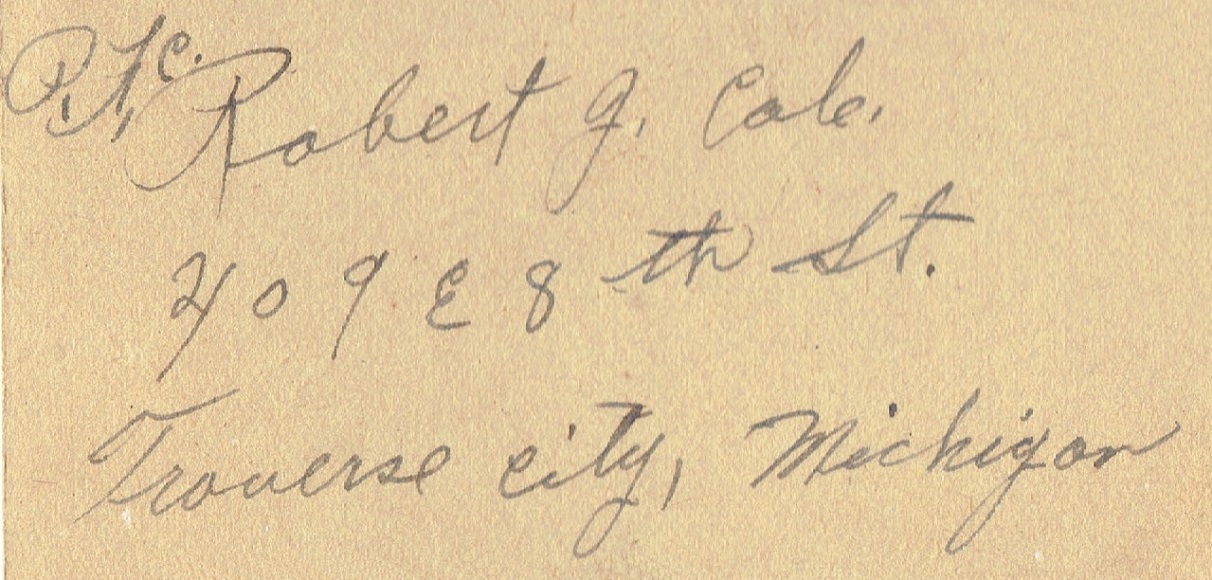 P.F.C. Robert J. Cole.
409 E 8th St.
Traverse city, Michigan